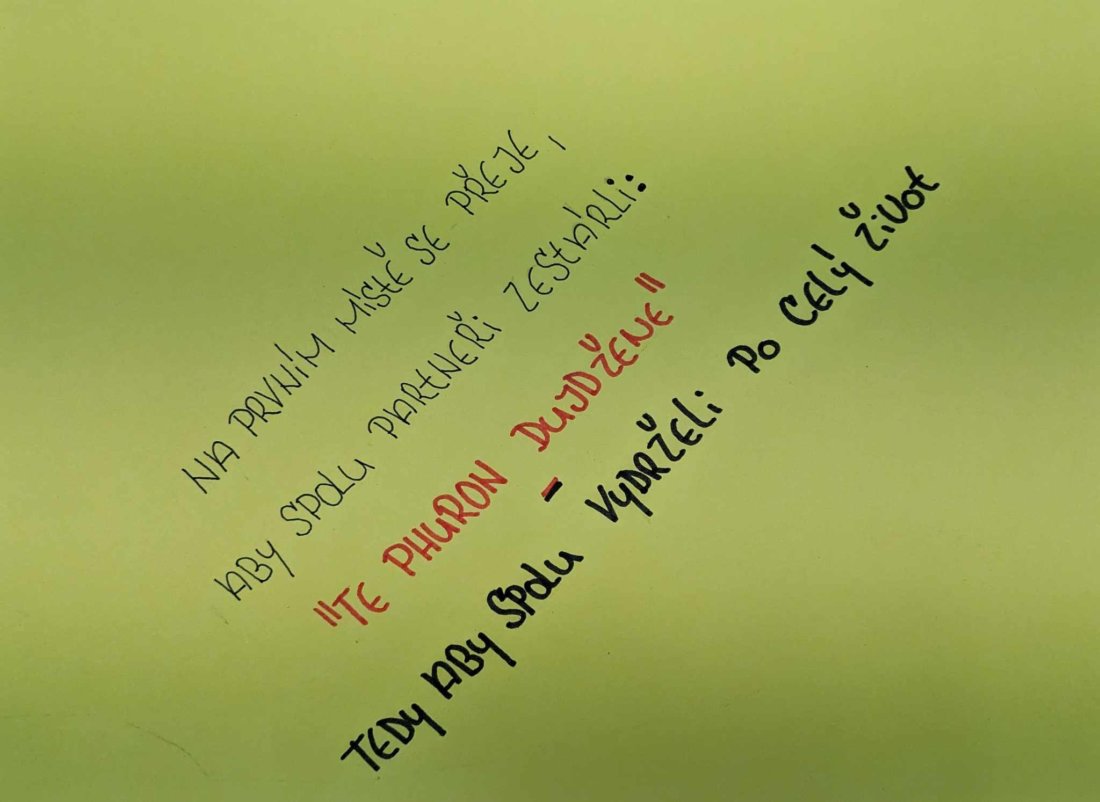 NA PRVNÍM MÍSTĚ SE PŘEJE,
ABY SPOLU PARTNEŘI ZESTÁRLI:
"TE PHURON DUJDŽENE"
-
TEDY ABY SPOLU VYDRŽELI PO CELÝ ŽIVOT